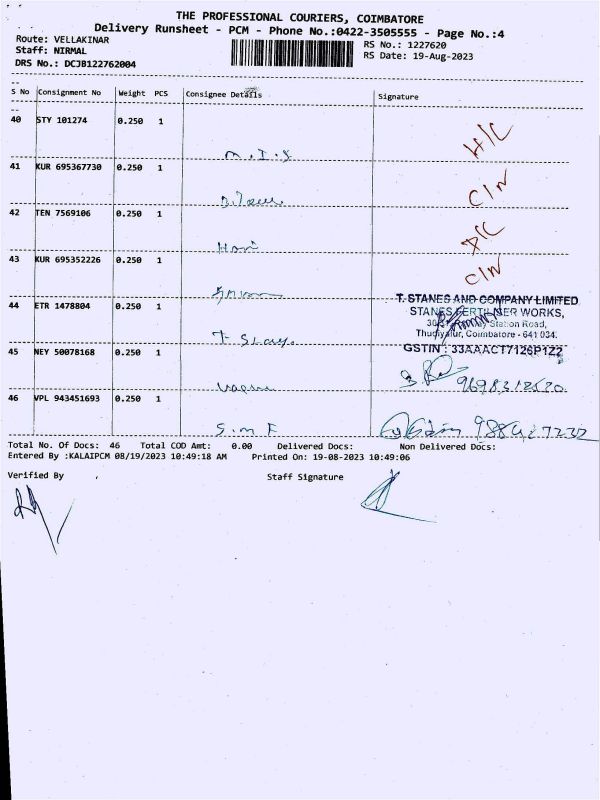 THE PROFESSIONAL COURIERS, COIMBATORE
Delivery Runsheet - PCM - Phone No.:0422-3505555 - Page No.:4
Route: VELLAKINAR
RS No.: 1227620
Staff: NIRMAL
RS Date: 19-Aug-2023
DRS No.: DCJB122762004
S No Consignment No Weight PCS Consignee Details Signature
40 STY 101274 0.250 1
M.I.S
H/C
41 KUR 695367730 0.250 1
C/N
42 TEN 7569106 0.250 1
Hari
43 KUR 695352226 0.250 1
C/N
44 ETR 1478804 0.250 1
T. STANES AND COMPANY LIMITED
STANES FERTILISER WORKS,
Station Road,
Thudiyalur, Coimbatore - 641 034.
GSTIN : 33AAACT7126P1Z2
45 NEY 50078168 0.250 1
46 VPL 943451693 0.250 1
S.M F
Total No. Of Docs: 46 Total COD Amt: 0.00 Delivered Docs: Non Delivered Docs:
Entered By :KALAIPCM 08/19/2023 10:49:18 AM Printed On: 19-08-2023 10:49:06
Verified By Staff Signature